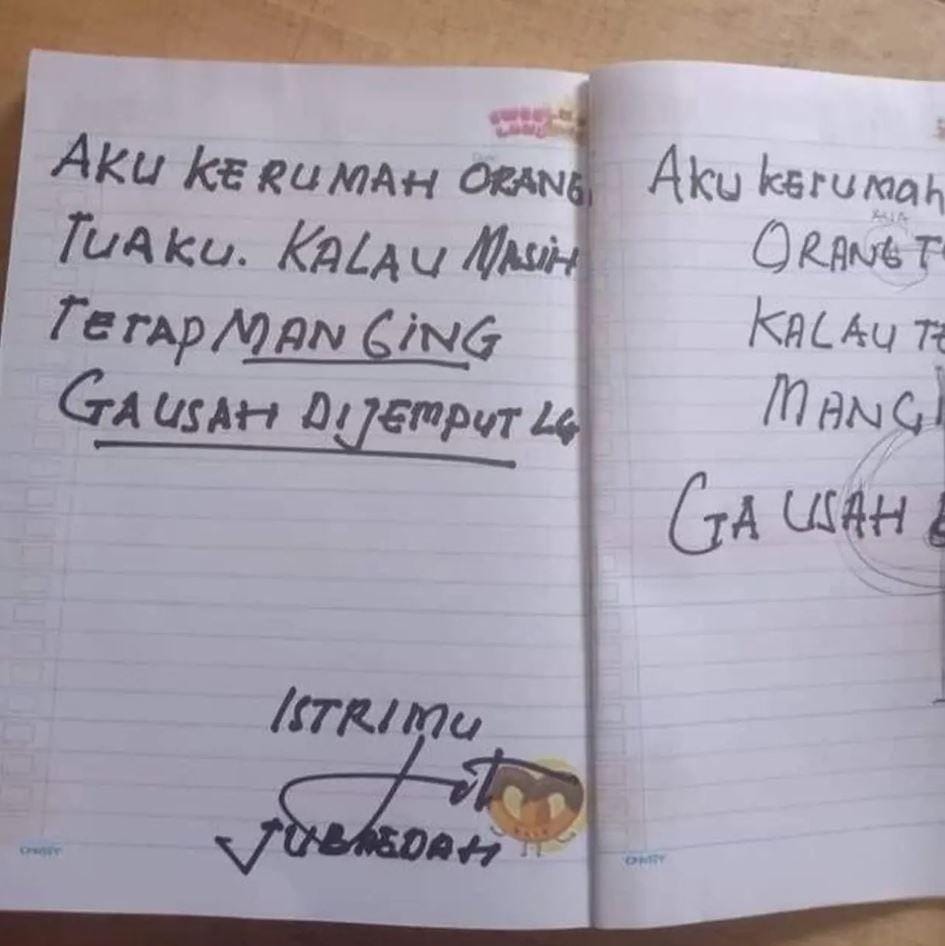 AKU KERUMAH ORANG
TUAKU. KALAU MASIH
TETAP MANGING
GAUSAH DIJEMPUT LG
ISTRIMU
JUBAEDAH
Aku kerumah
ORANG
KALAU
MANGI
GAUSAH